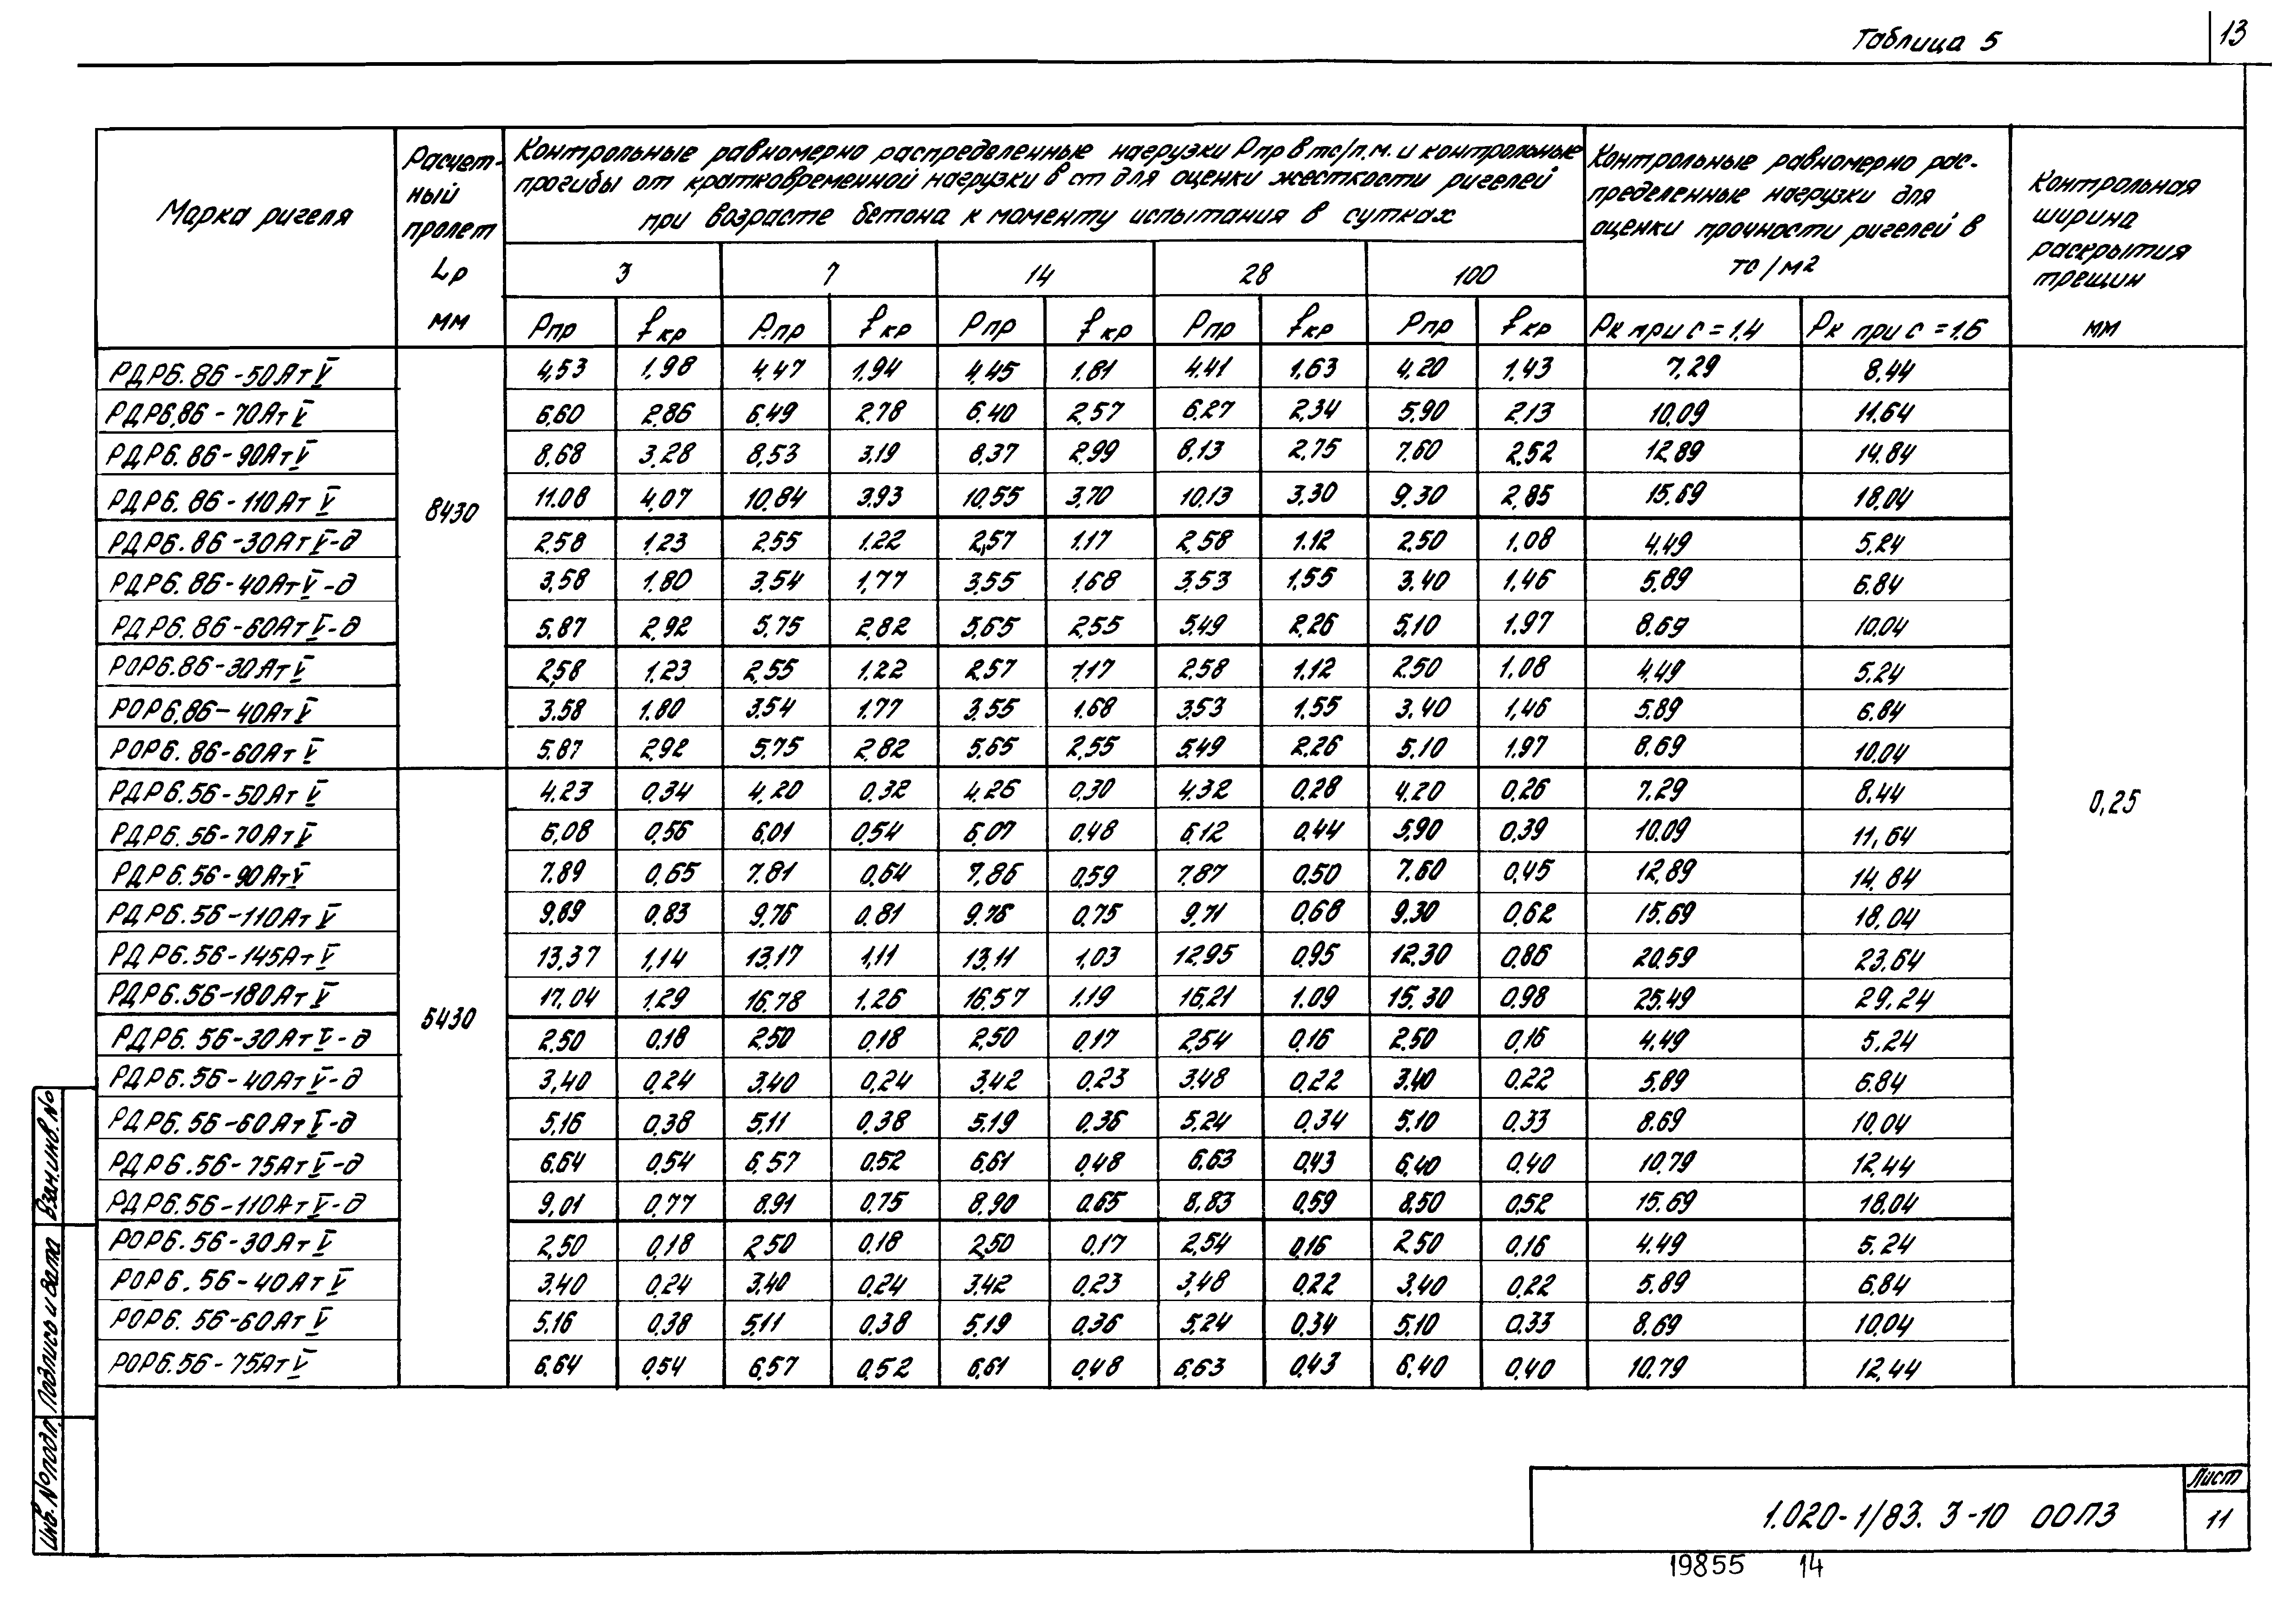 Таблица 5
13
Марка ригеля
Расчет-
ный
пролет
Lр
мм
Контрольные равномерно распределенные нагрузки Рпр в тс/п.м. и контрольные
прогибы от кратковременной нагрузки в см для оценки жесткости ригелей
при возрасте бетона к моменту испытания в сутках
Контрольные равномерно рас-
пределенные нагрузки для
оценки прочности ригелей в
тс/м2
Контрольная
ширина
раскрытия
трещин
мм
3 7 14 28 100
Рпр fкр Рпр fкр Рпр fкр Рпр fкр Рпр fкр Рк при с=1.4 Рк при с=1.6
РДР6.86-50АтV 4,53 1,98 4,47 1,94 4,45 1.81 4.41 1,63 4,20 1,43 7,29 8,44
РДР6,86-70АтV 6,60 2,86 6,49 2,78 6,40 2,57 6.27 2,34 5,90 2,13 10,09 11.64
РДР6.86-90АтV 8,68 3,28 8,53 3,19 8,37 2,99 8,13 2,75 7,60 2,52 12,89 14.84
РДР6.86-110АтV 11.08 4,07 10,84 3,93 10,55 3,70 10,13 3,30 9,30 2,85 15,69 18,04
8430
РДР6.86-30АтV-д 2,58 1,23 2,55 1.22 2,57 1,17 2,58 1.12 2,50 1,08 4,49 5,24
РДР6.86-40АтV-д 3,58 1,80 3,54 1,77 3,55 1,68 3,53 1,55 3,40 1,46 5,89 6.84
РДР6.86-60АтV-д 5,87 2,92 5,75 2,82 5,65 2,55 5,49 2,26 5,10 1.97 8.69 10.04
РОР6.86-30АтV 2,58 1,23 2,55 1.22 2,57 1,17 2,58 1,12 2.50 1,08 4,49 5,24
РОР6,86-40АтV 3.58 1,80 3,54 1,77 3,55 1.68 3,53 1,55 3,40 1,46 5,89 6.84
РОР6.86-60АтV 5,87 2,92 5,75 2,82 5,65 2,55 5,49 2,26 5,10 1,97 8,69 10,04
РДР6.56-50АтV 4.23 0,34 4,20 0,32 4,26 0,30 4,32 0,28 4,20 0,26 7,29 8,44
0,25
РДР6.56-70АтV 6,08 0,56 6,01 0,54 6,07 0,48 6,12 0,44 5,90 0,39 10,09 11,64
РДР6.56-90АтV 7.89 0,65 7.81 0,64 7,86 0,59 7,87 0,50 7,60 0,45 12,89 14,84
РДР6.56-110АтV 9,89 0,83 9,76 0,81 9,76 0,75 9,71 0,68 9,30 0,62 15.69 18,04
РДР6.56-145АтV 13,37 1,14 13,17 1,11 13,11 1,03 12,95 0,95 12,30 0,86 20,59 23,64
РДР6.56-180АтV 17,04 1,29 16,78 1.26 16,57 1,19 16,21 1.09 15,30 0,98 25,49 29,24
5430
РДР6.56-30АтV-д 2,50 0,18 2,50 0,18 2,50 0,17 2,54 0,16 2,50 0,16 4,49 5,24
РДР6.56-40АтV-д 3,40 0,24 3,40 0,24 3,42 0,23 3,48 0,22 3,40 0,22 5,89 6.84
РДР6.56-60АтV-д 5,16 0,38 5,11 0,38 5,19 0,36 5,24 0,34 5,10 0,33 8,69 10,04
РДР6.56-75АтV-д 6,64 0,54 6,57 0,52 6,61 0,48 6,63 0,43 6,40 0,40 10,79 12,44
РДР6.56-110АтV-д 9,01 0,77 8,91 0,75 8,90 0,65 8,83 0,59 8,50 0,52 15.69 18,04
РОР6.56-30АтV 2,50 0,18 2,50 0,18 2,50 0,17 2,54 0,16 2,50 0,16 4,49 5,24
РОР6.56-40АтV 3,40 0,24 3,40 0,24 3,42 0,23 3,48 0,22 3,40 0,22 5,89 6,84
РОР6.56-60АтV 5,16 0,38 5,11 0,38 5,19 0,36 5,24 0,34 5,10 0,33 8,69 10,04
РОР6.56-75АтV 6,64 0,54 6,57 0,52 6,61 0,48 6,63 0,43 6,40 0,40 10,79 12,44
Взам.инв.№
Подпись и дата
Инв.№подл.
1.020-1/83. 3-10 00ПЗ
Лист
11
19855 14